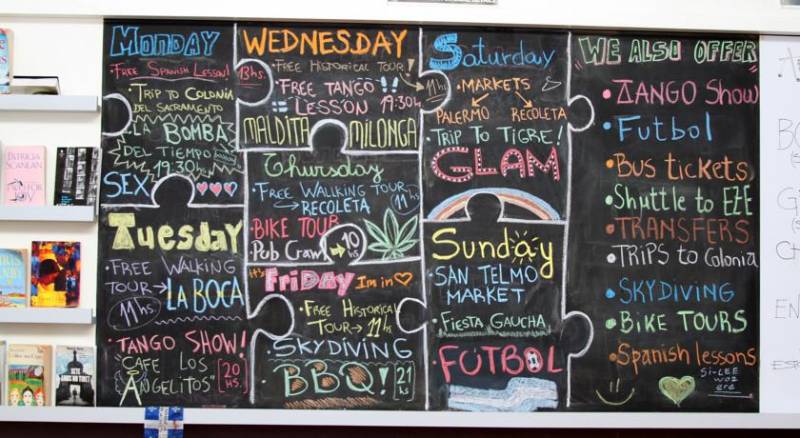 Monday
FREE SPANISH LESSON!
TRIP TO COLONIA
DEL SACRAMENTO
LA BOMBA
DEL TIEMPO
19:30hs
SEX
Tuesday
FREE WALKING
TOUR→
11hs
LA BOCA
TANGO SHOW!
"CAFE LOS
ANGELITOS"
20
HS.
WEDNESDAY
FREE HISTORICAL TOUR!
13hs.
11hs
FREE TANGO
LESSON 19:30hs
MALDITA MILONGA
Thursday
FREE WALKING TOUR
→ RECOLETA
11hs
BIKE TOUR
Pub Crawl →
10
hs
It's FRiDAY I'm in
FREE HISTORICAL
TOUR → 11hs
SKYDIVING
BBQ!
21
hs
Saturday
MARKETS
PALERMO RECOLETA
TRIP TO TIGRE!
GLAM
Sunday
SAN TELMO
MARKET
FIESTA GAUCHA
FÚTBOL
"WE ALSO OFFER"
TANGO Show
Futbol
Bus tickets
Shuttle to EZE
TRANSFERS
TRIPS to Colonia
SKYDIVING
BIKE TOURS
Spanish lessons
SI-LEE
WOZ
ERE
PATRICIA
SCANLAN